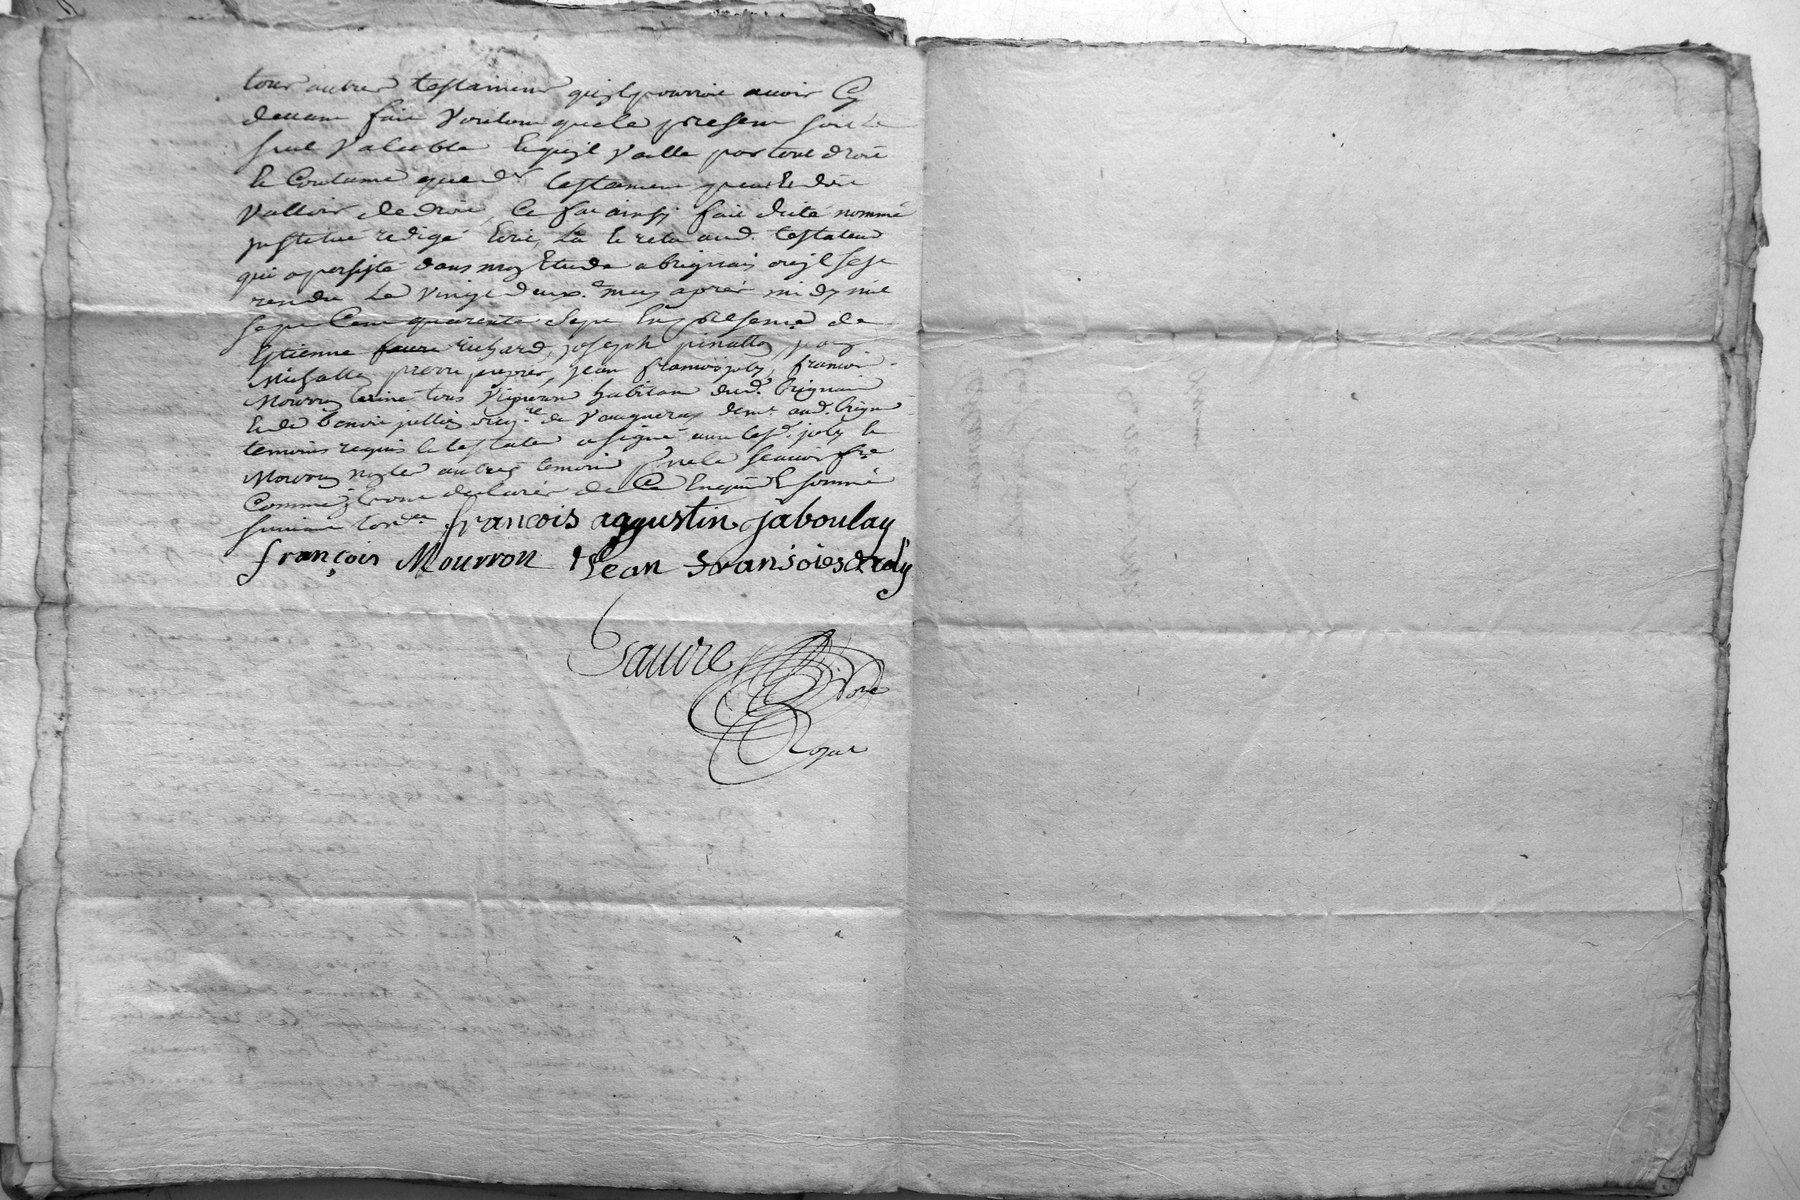 tous autres testament quil pourroit auoir Cy
deuant fait Voulant que le present soit Le
seul Valleable Et quil Vaille par tout droit
Et Coutume que dt testament peut Et doit
Valloir de droit, Ce fut ainsy fait dicté nommé
Institué redigé Ecrit, Lû Et relu aud. testateur
qui a persisté dans moy Etude a brignais ou il s'est
rendu Le Vingt deux. may aprés midy mil
sept Cent quarente Sept En presence de
Etienne richard, joseph pinatty,
pierre jean francois joly, francois
Mourron tous Vigneron habitant dud. brignais
Et de benoit de Vaugneray demt aud. brign
temoins requis le testateur a signé auec lesd. joly Et
Mourron non les autres temoins pour ne le scauoir fre
Comme ils ont declarés de Ce Enquis Et sommé
suiuant Lordce francois aggustin jaboulay
françois Mourron Jean Fransoies Joly
Faure
Nore
Royal